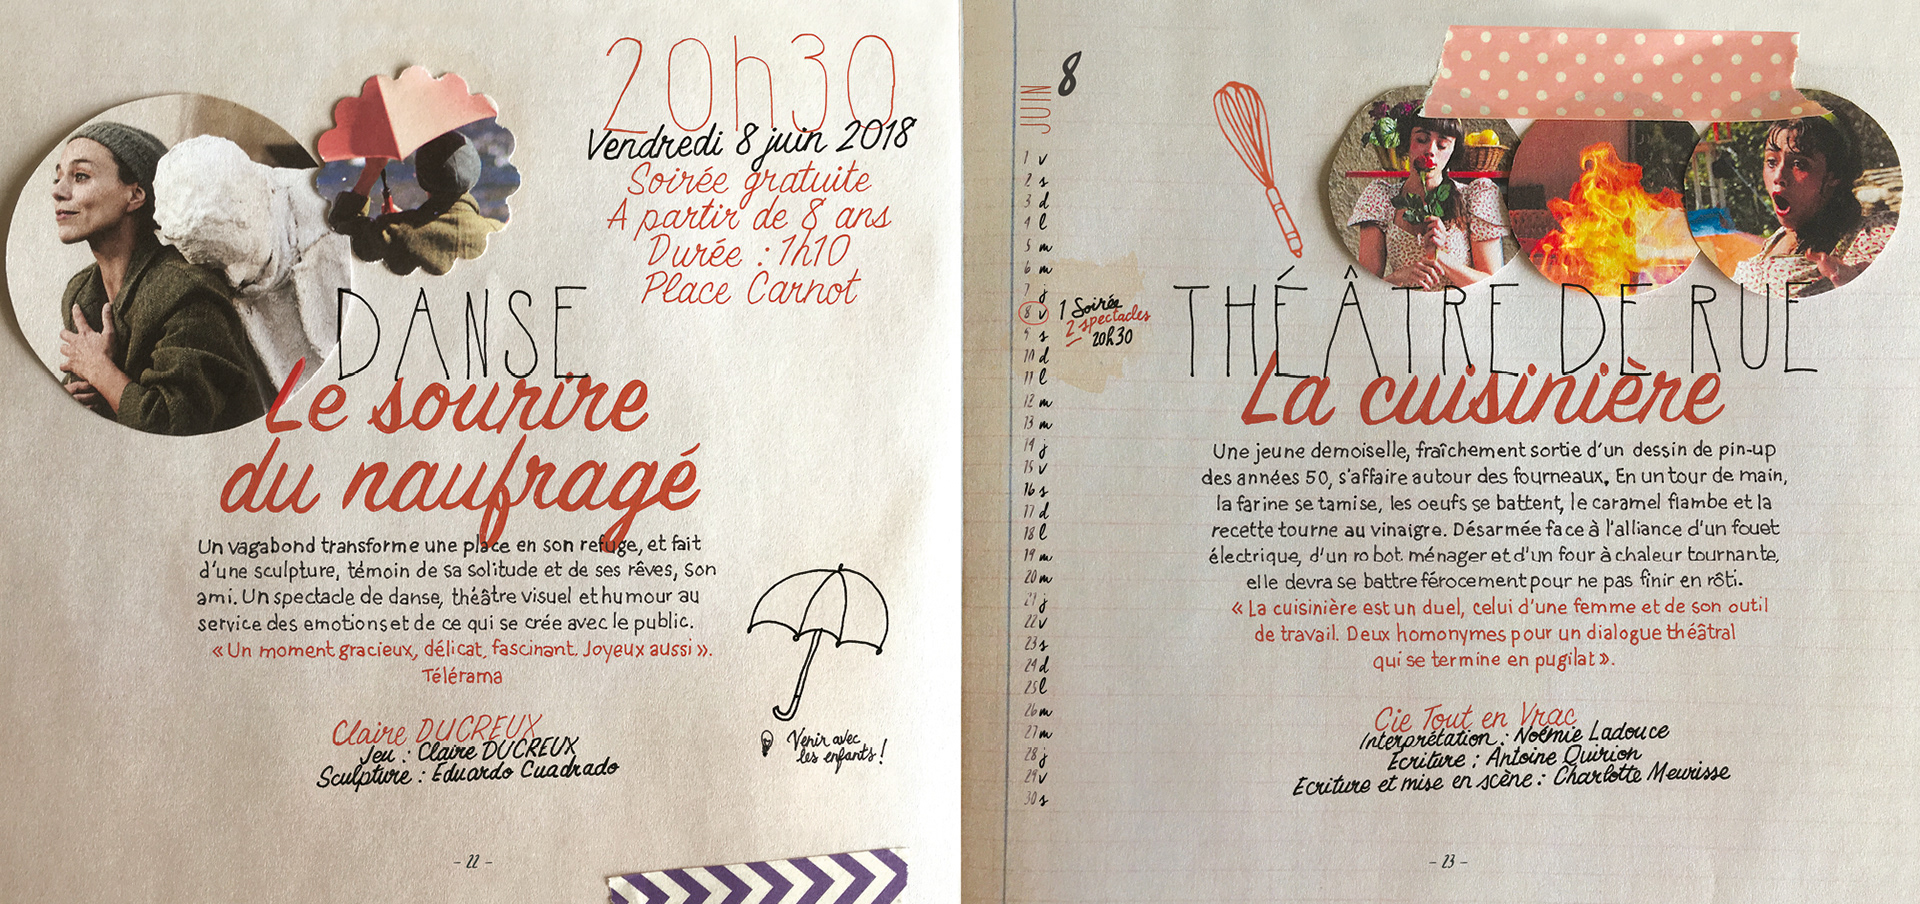 20h30
Vendredi 8 juin 2018
Soirée gratuite
A partir de 8 ans
Durée : 1h10
Place Carnot
DANSE
Le sourire
du naufragé
Un vagabond transforme une place en son refuge, et fait
d'une sculpture, témoin de sa solitude et de ses rêves, son
ami. Un spectacle de danse, théâtre visuel et humour au
service des émotions et de ce qui se crée avec le public.
« Un moment gracieux, délicat, fascinant. Joyeux aussi ».
Télérama
Claire DUCREUX
Jeu : Claire DUCREUX
Sculpture : Eduardo Cuadrado
Venir avec
les enfants !
- 22 -
JUIN 8
1 v
2 s
3 d
4 l
5 m
6 m
7 j
8 v
9 s
10 d
11 l
12 m
13 m
14 j
15 v
16 s
17 d
18 l
19 m
20 m
21 j
22 v
23 s
24 d
25 l
26 m
27 m
28 j
29 v
30 s
1 Soirée
2 spectacles
20h30
THÉÂTRE DE RUE
La cuisinière
Une jeune demoiselle, fraîchement sortie d'un dessin de pin-up
des années 50, s'affaire autour des fourneaux. En un tour de main,
la farine se tamise, les oeufs se battent, le caramel flambe et la
recette tourne au vinaigre. Désarmée face à l'alliance d'un fouet
électrique, d'un robot ménager et d'un four à chaleur tournante,
elle devra se battre férocement pour ne pas finir en rôti.
« La cuisinière est un duel, celui d'une femme et de son outil
de travail. Deux homonymes pour un dialogue théâtral
qui se termine en pugilat ».
Cie Tout en Vrac
Interprétation : Noémie Ladouce
Ecriture : Antoine Quirion
Ecriture et mise en scène : Charlotte Meurisse
- 23 -